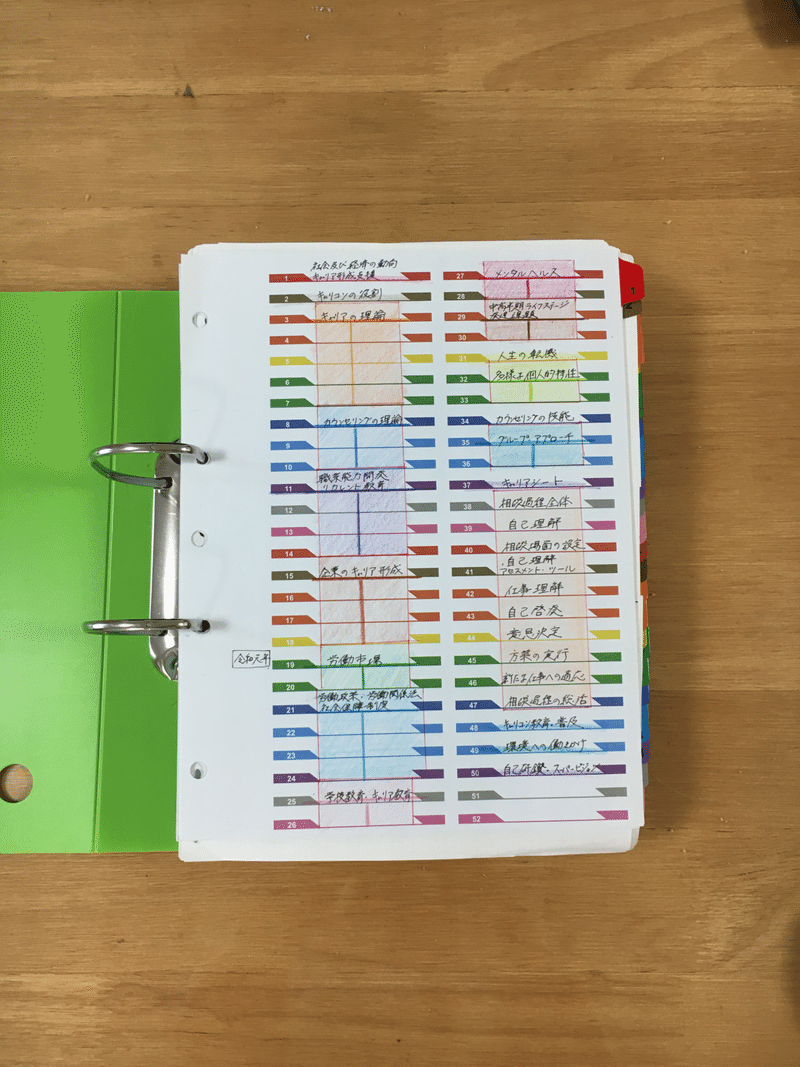 社会及び経済の動向
1 キャリア形成支援
2 キャリコンの役割
3 キャリアの理論
4
5
6
7
8 カウンセリングの理論
9
10
職業能力開発
11 リカレント教育
12
13
14
15 企業のキャリア形成
16
17
18
令和元年
19 労働市場
20
労働政策・労働関係法
21 社会保障制度
22
23
24
25 学校教育・キャリア教育
26
27 メンタルヘルス
28
中高年期ライフステージ
29 発達課題
30
31 人生の転機
32 多様な個人的特性
33
34 カウンセリングの技能
35 グループアプローチ
36
37 キャリアシート
38 相談過程全体
39 自己理解
40 相談場面の設定
・自己理解
41 アセスメント・ツール
42 仕事理解
43 自己啓発
44 意思決定
45 方策の実行
46 新たな仕事への適応
47 相談過程の総括
48 キャリコン教育・普及
49 環境への働きかけ
50 自己研鑽・スーパービジョン
51
52
1
2